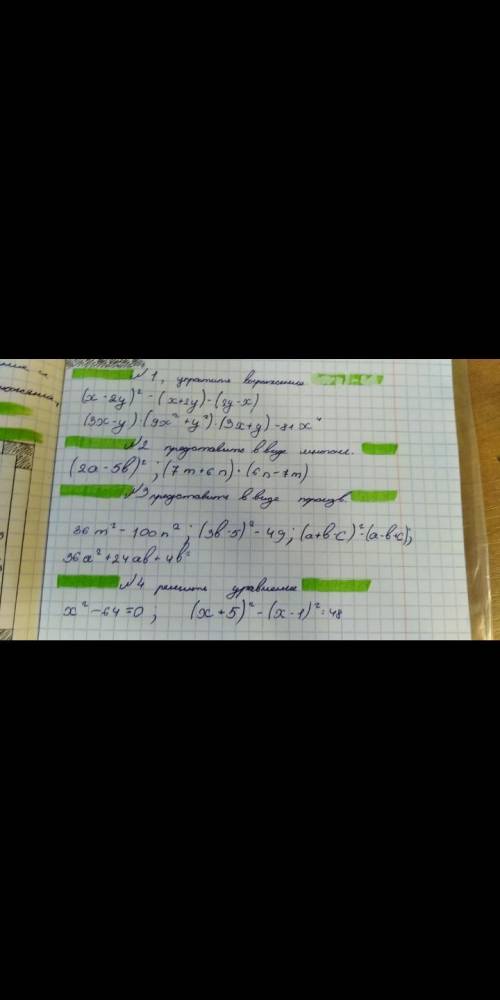 №1, упростить выражение
(x-2y)² - (x+2y)-(2y-x)
(3x-y)·(9x²+y²)·(3x+y)-81x⁴
№2 представить в виде многочл.
(2a-5b)²; (7m+6n)·(6n-7m)
№3 представить в виде произв.
36m²-100n²; (3b-5)²-49; (a+b-c)²-(a-b+c)²;
36a²+24ab+4b²
№4 решить уравнение
x²-64=0; (x+5)²-(x-1)²=48